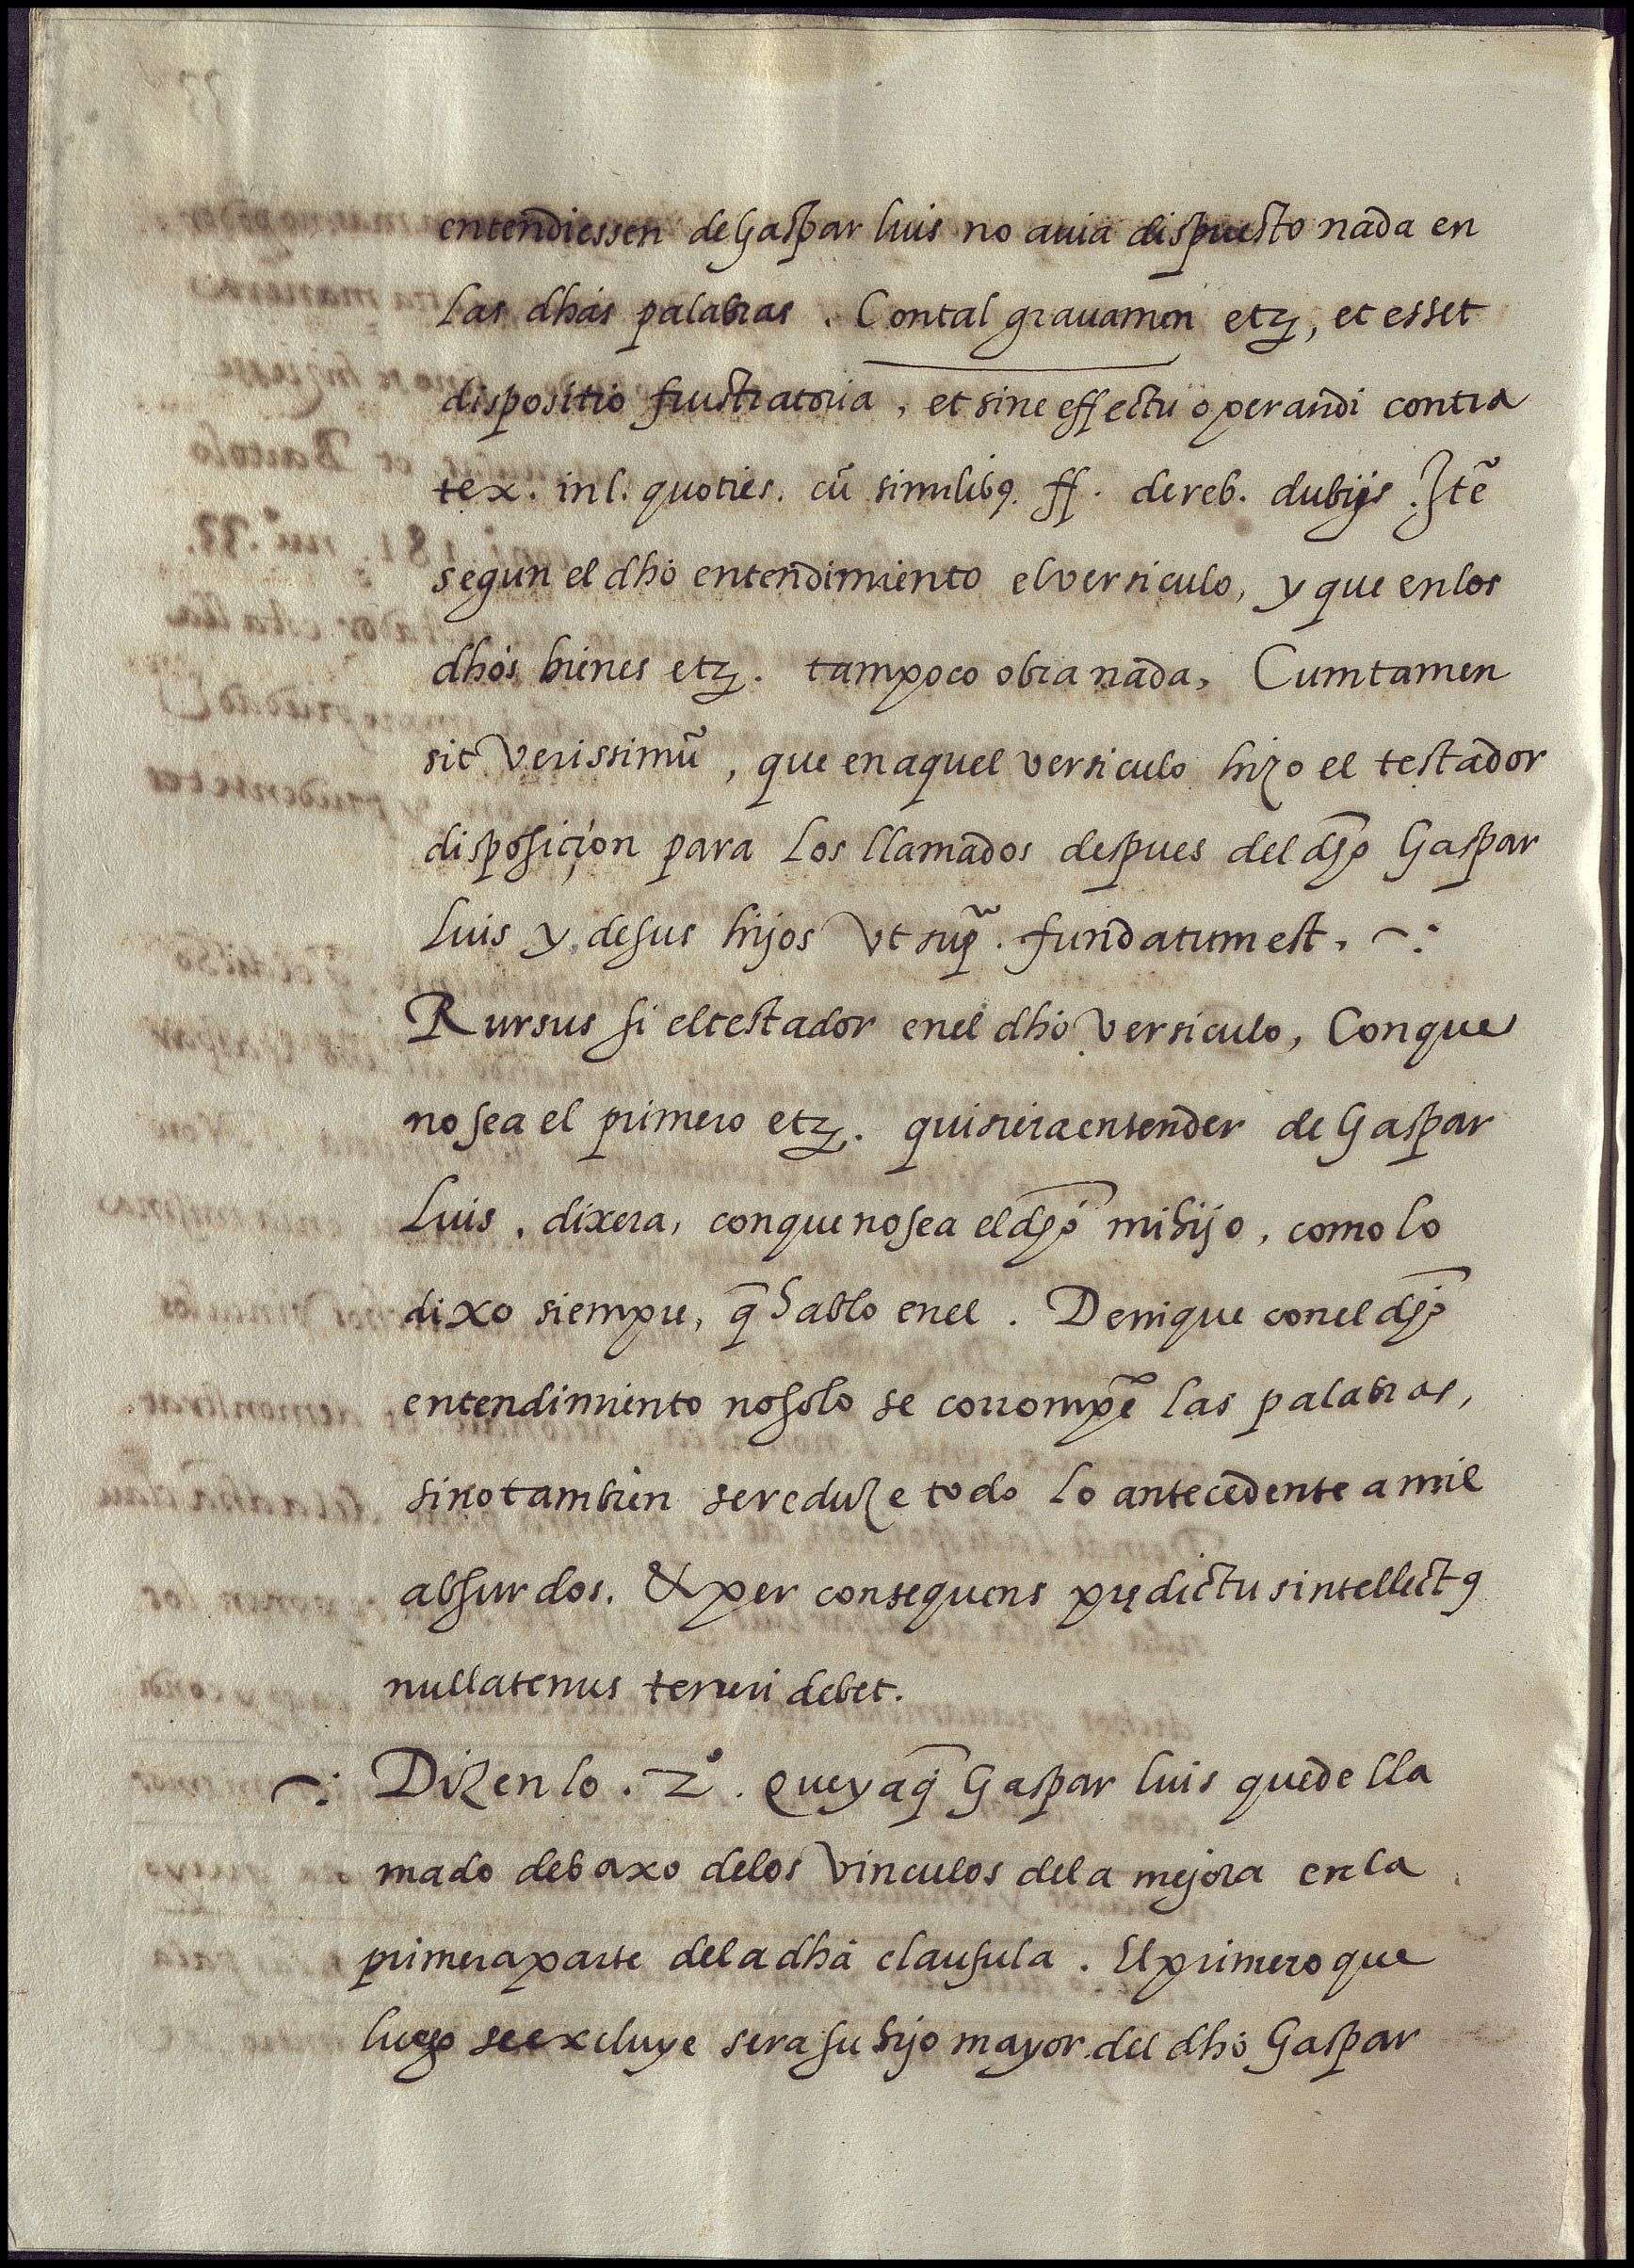 entendiessen de Gaspar luis no auia dispuesto nada en
las dhas palabras. Con tal grauamen etz, et esset
dispositio frustratoria, et sine effectu operandi contra
tex. in l. quoties. cũ similibꝰ. ff. de reb. dubijs. Itẽ
segun el dho entendimiento el versiculo, y que en los
dhos bienes etz. tampoco obra nada, Cum tamen
sit verissimũ, que en aquel versiculo hizo el testador
disposiçion para los llamados despues del dho Gaspar
luis y de sus hijos vt supᵃ. fundatum est. ~:
Rursus si el testador en el dho versiculo, Con que
no sea el primero etz. quisiera entender de Gaspar
luis, dixera, con que no sea el dho mi hijo, como lo
dixo siempre, q̃ hablo en el. Denique con el dho
entendimiento no solo se corrompẽ las palabras,
sino tambien se reduze todo lo antecedente a mil
absurdos. & per consequens prędictus intellectꝰ
nullatenus teneri debet.
~: Dizen lo. 2º. que ya q̃ Gaspar luis quede lla
mado debaxo de los vinculos de la mejora en la
primera parte de la dha clausula. El primero que
luego se excluye sera su hijo mayor del dho Gaspar